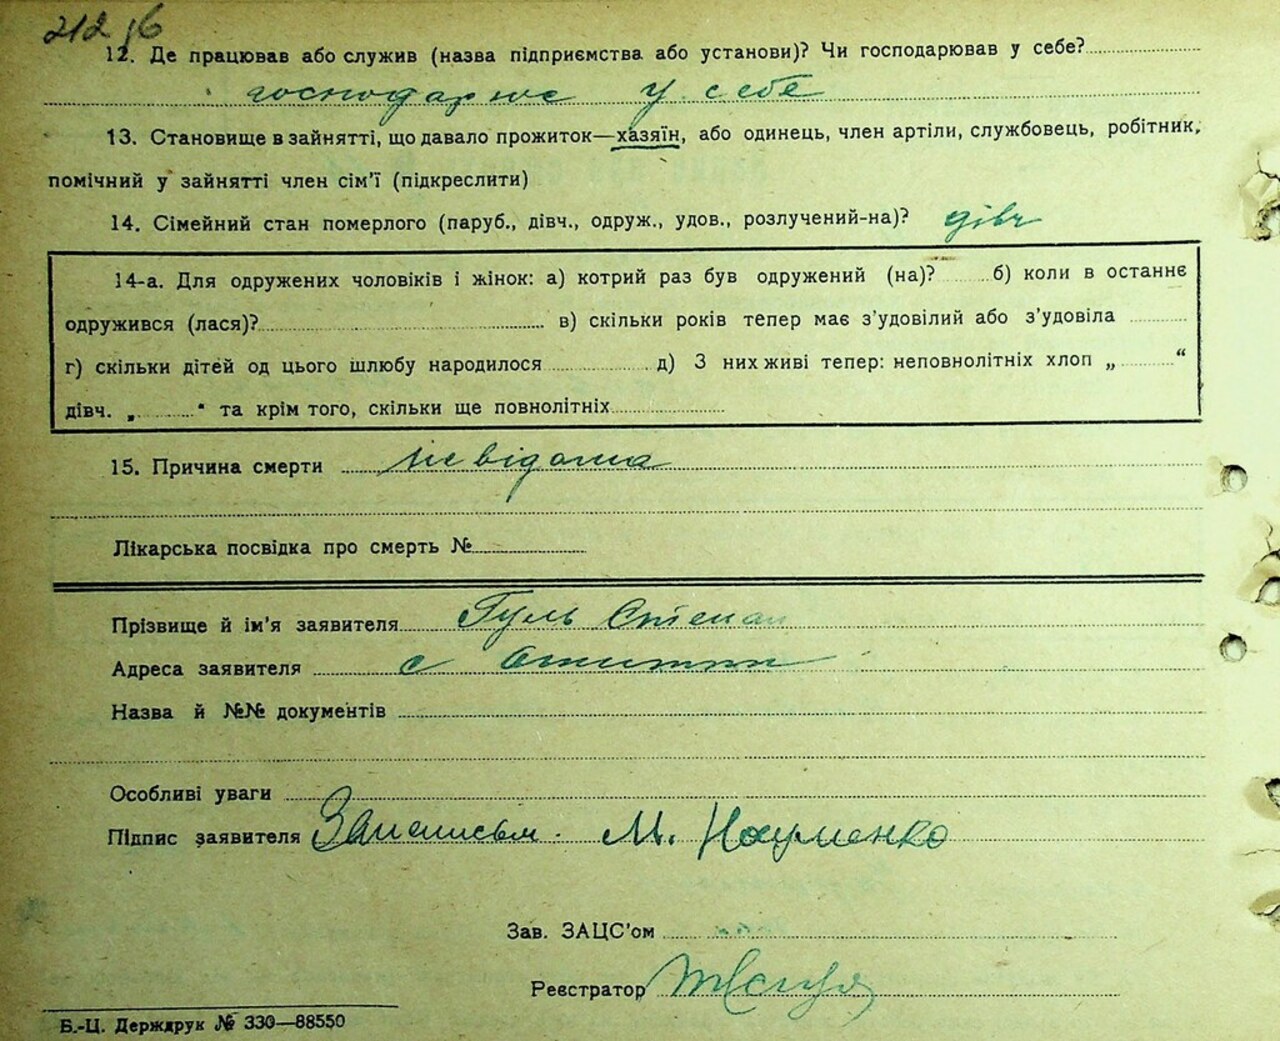 212 16
12. Де працював або служив (назва підприємства або установи)? Чи господарював у себе?
господарює у себе
13. Становище в зайнятті, що давало прожиток—хазяїн, або одинець, член артілі, службовець, робітник,
помічний у зайнятті член сім'ї (підкреслити)
14. Сімейний стан померлого (паруб., дівч., одруж., удов., розлучений-на)? дівч
14-а. Для одружених чоловіків і жінок: а) котрий раз був одружений (на)? б) коли в останнє
одружився (лася)? в) скільки років тепер має з'удовілий або з'удовіла
г) скільки дітей од цього шлюбу народилося д) З них живі тепер: неповнолітніх хлоп „ “
дівч. „ “ та крім того, скільки ще повнолітніх
15. Причина смерти невідома
Лікарська посвідка про смерть №
Прізвище й ім'я заявителя Гуль Степан
Адреса заявителя с
Назва й №№ документів
Особливі уваги
Підпис заявителя М. Науменко
Зав. ЗАЦС'ом
Реєстратор
Б.-Ц. Держдрук № 330—88550